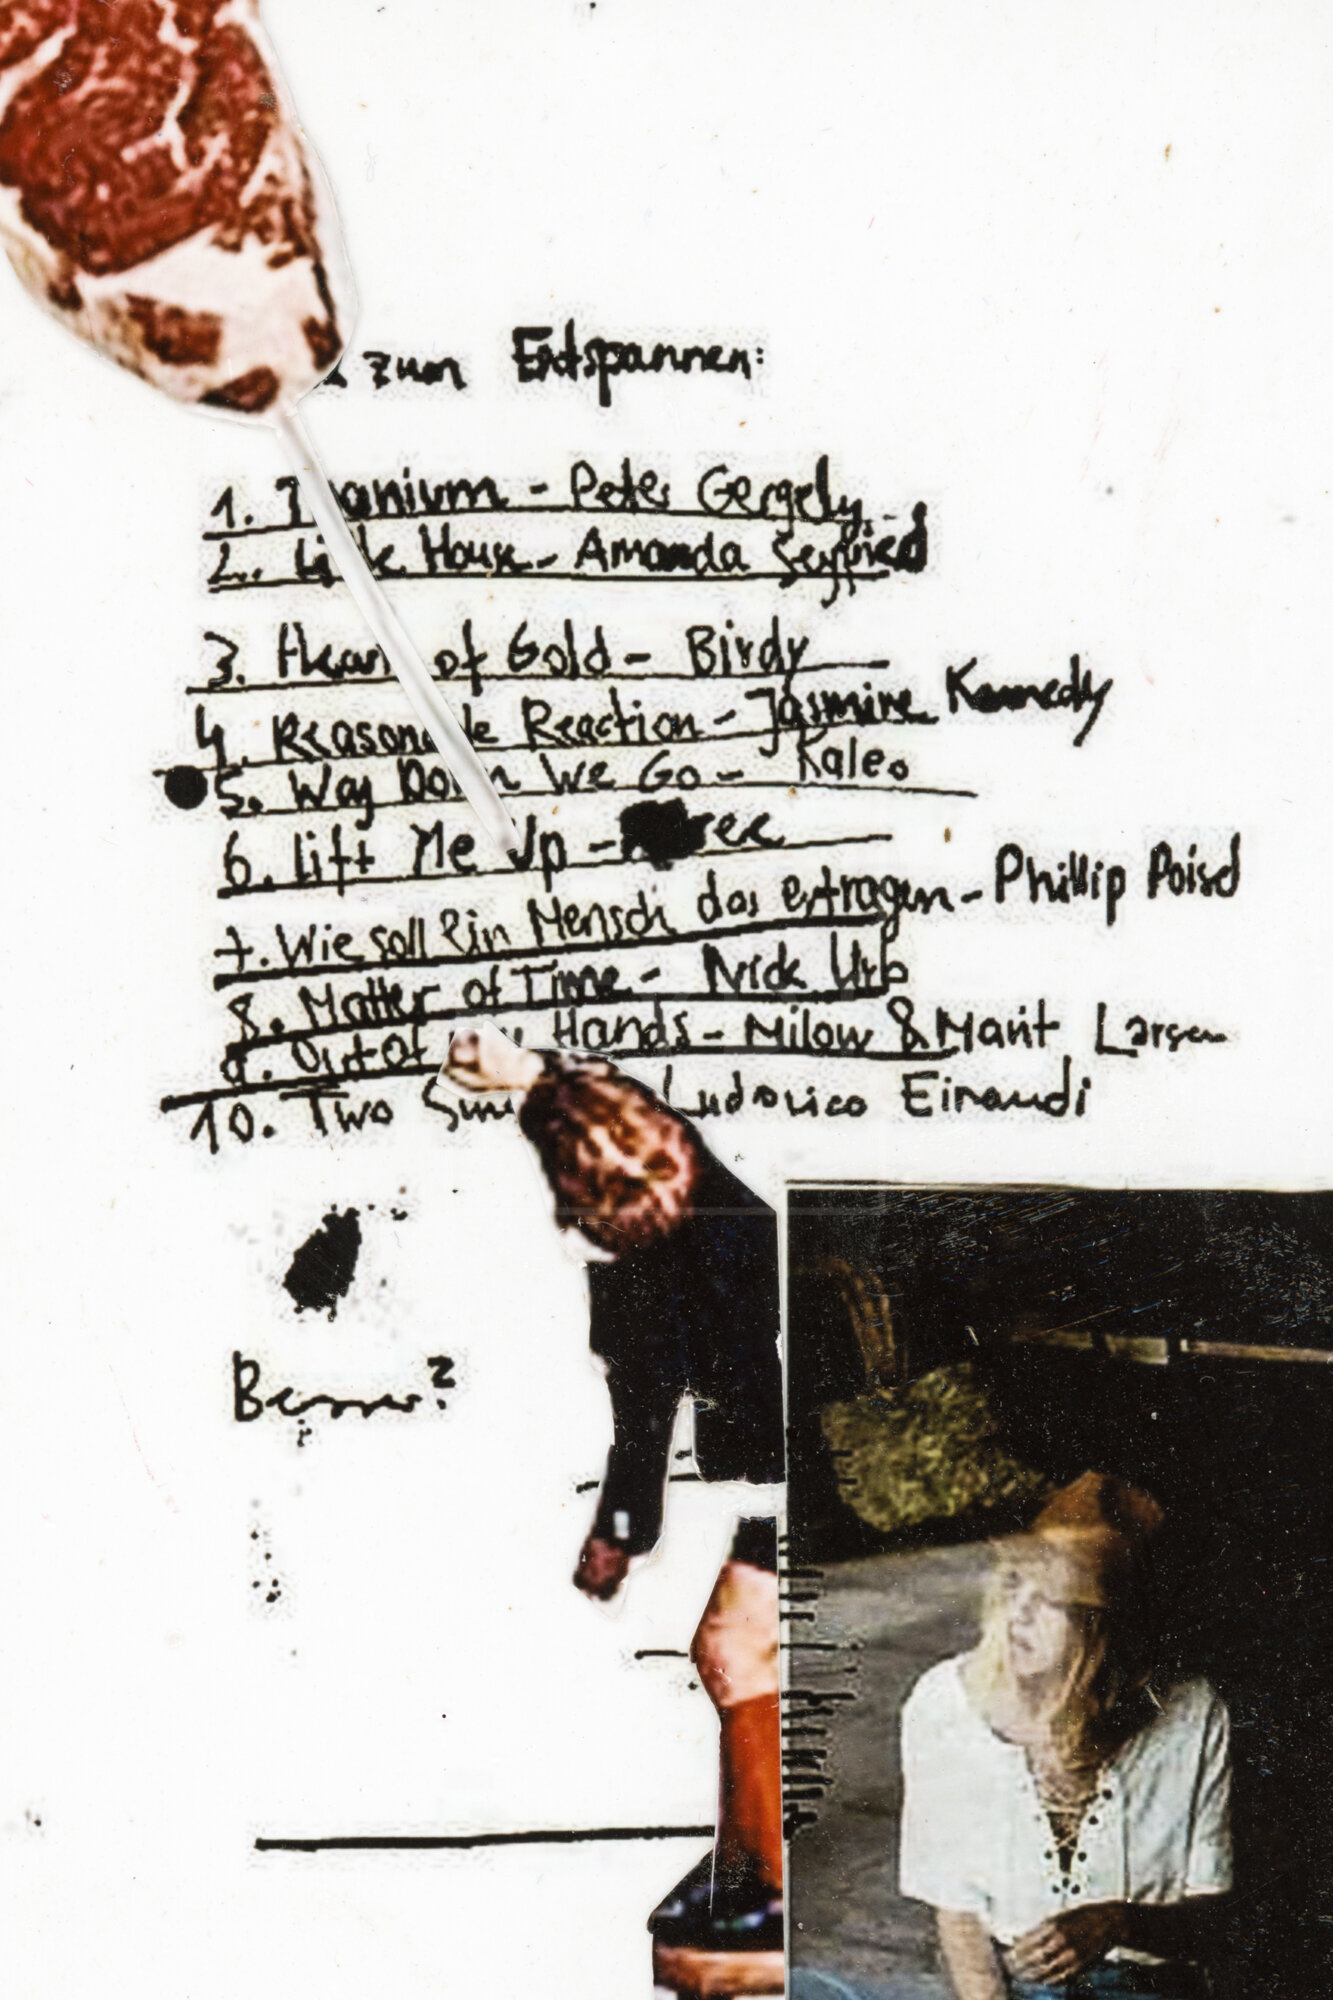 zum Entspannen:
1. Titanium - Peter Gergely
2. Little House - Amanda Seyfried
3. Heart of Gold - Birdy
4. Reasonable Reaction - Jasmine Kennedy
5. Way Down We Go - Kaleo
6. Lift Me Up -
7. Wie soll ein Mensch das ertragen - Phillip Poisel
8. Matter of Time - Nick Urb
9. Out of My Hands - Milow & Marit Larsen
10. Two Ludovico Einaudi
Besser?